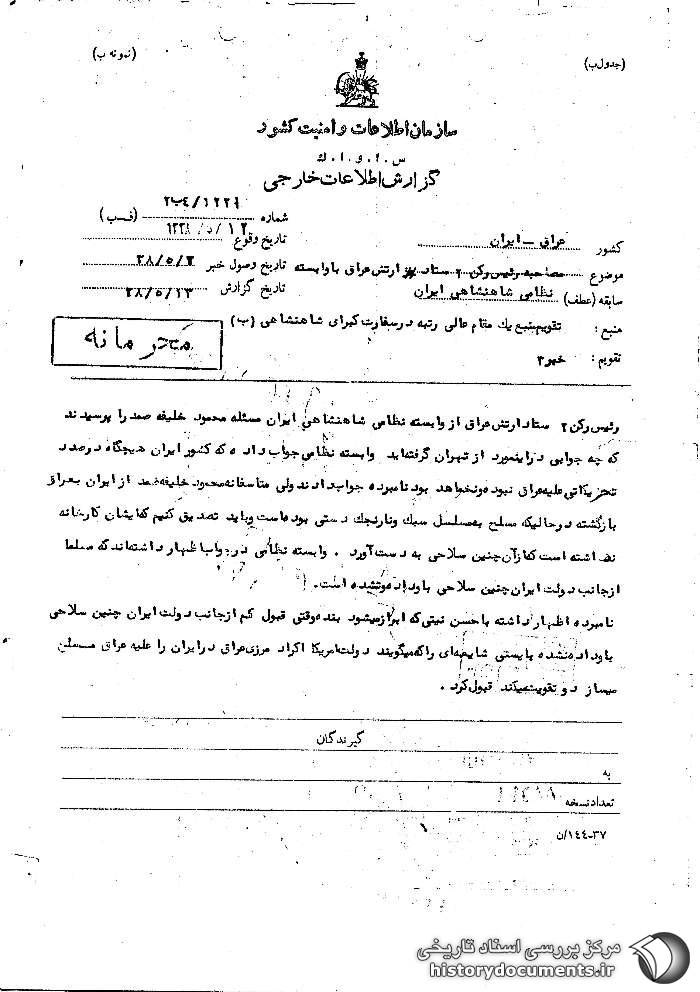 (جدول ب)
(نمونه ب)
سازمان اطلاعات و امنیت کشور
س . ا . و . ا . ك
گزارش اطلاعات خارجی
شماره (ف ب)
کشور عراق – ایران
تاریخ وقوع
موضوع مصاحبه رئیس رکن ۲ ستاد ارتش عراق با وابسته
تاریخ وصول خبر ۳۸/۵/۲
سابقه (عطف) نظامی شاهنشاهی ایران
تاریخ گزارش ۳۸/۵/۱۳
منبع : تقویم منبع یك مقام عالی رتبه در سفارت کبرای شاهنشاهی (ب)
تقویم : خبر ۳
محرمانه
رئیس رکن ۲ ستاد ارتش عراق از وابسته نظامی شاهنشاهی ایران مسئله محمود خلیفه صمد را پرسیدند
که چه جوابی در اینمورد از تهران گرفته اید وابسته نظامی جواب داد ه که کشور ایران هیچگاه در صدد
تحریکاتی علیه عراق نبوده ونخواهد بود نامبرده جواب دادند ولی متاسفانه محمود خلیفه صمد از ایران بعراق
بازگشته در حالیکه مسلح به مسلسل سبك ونارنجك دستی بوده است وباید تصدیق کنیم که ایشان کارخانه
نداشته است که از آن چنین سلاحی به دست آورد . وابسته نظامی در جواب اظهار داشته اند که مسلما
از جانب دولت ایران چنین سلاحی باو داده نشده است .
نامبرده اظهار داشته با حسن نیتی که ابراز میشود بنده وقتی قبول کنم از جانب دولت ایران چنین سلاحی
باو داده نشده بایستی شایعه ای را که میگویند دولت امریکا اکراد مرزی عراق در ایران را علیه عراق مسلح
میساز د و تقویت میکند قبول کرد .
گیرندگان
به
تعداد نسخه
۳۷-۱۴۴/ن
مرکز بررسی اسناد تاریخی
historydocuments.ir